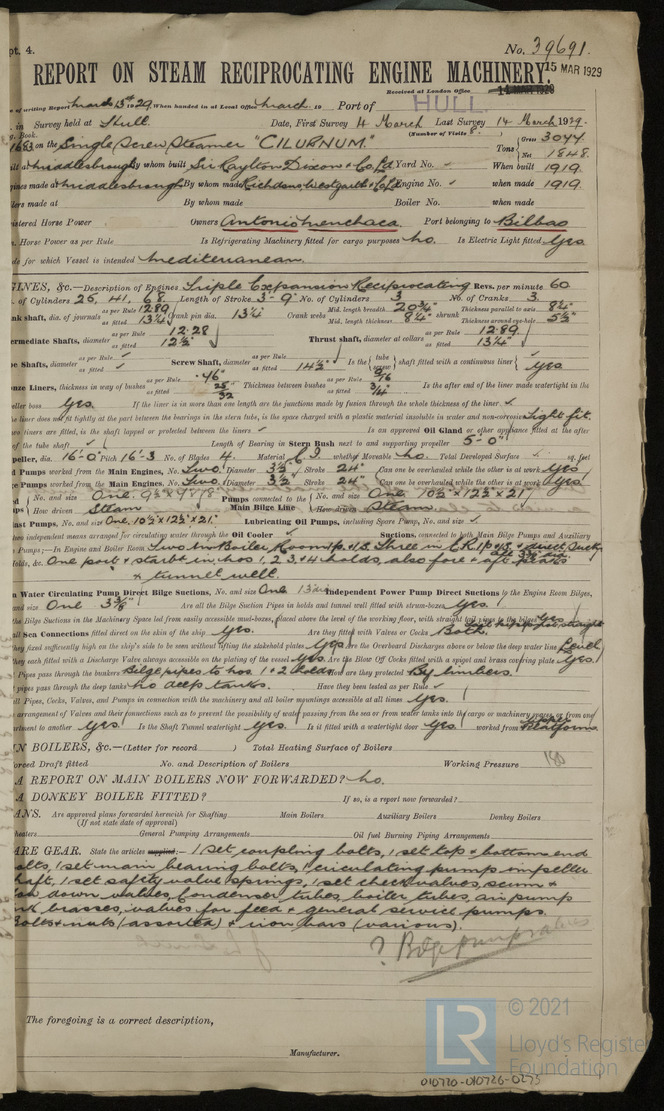 pt. 4. No. 39691.
REPORT ON STEAM RECIPROCATING ENGINE MACHINERY.
15 MAR 1929
Received at London Office
of writing Report March 13th 1929 When handed in at Local Office March. 19 Port of HULL.
in Survey held at Hull. Date, First Survey 4 March Last Survey 14 March 1929.
Book. (Number of Visits 8.
on the Single Screw Steamer "CILURNUM." Tons Gross 3044 Net 1848
at Middlesbrough By whom built Sir Raylton Dixon & Co Ld Yard No. When built 1919.
made at Middlesbrough By whom made Richardsons Westgarth & Co Ld Engine No. when made 1919
made at By whom made Boiler No. when made
Horse Power Owners Antonio Menchaca. Port belonging to Bilbao
Horse Power as per Rule Is Refrigerating Machinery fitted for cargo purposes No. Is Electric Light fitted Yes.
for which Vessel is intended Mediterranean.
GINES, &c.—Description of Engines Triple Expansion Reciprocating Revs. per minute 60
of Cylinders 25, 41, 68. Length of Stroke 3'-9" No. of Cylinders 3 No. of Cranks 3.
shaft, dia. of journals as per Rule 12.89 as fitted 13¼ Crank pin dia. 13¼ Crank webs Mid. length breadth 20¾" Mid. length thickness 8¼" shrunk Thickness parallel to axis 8¼" Thickness around eye-hole 5½"
termediate Shafts, diameter as per Rule 12.28 as fitted 12½" Thrust shaft, diameter at collars as per Rule 12.89. as fitted 13¼"
Shafts, diameter as per Rule as fitted Screw Shaft, diameter as per Rule as fitted 14½" Is the tube screw shaft fitted with a continuous liner Yes
Liners, thickness in way of bushes as per Rule .46" as fitted 25/32 Thickness between bushes as per Rule 9/16 as fitted 3/4" Is the after end of the liner made watertight in the
boss Yes. If the liner is in more than one length are the junctions made by fusion through the whole thickness of the liner
liner does not fit tightly at the part between the bearings in the stern tube, is the space charged with a plastic material insoluble in water and non-corrosive Tight fit.
two liners are fitted, is the shaft lapped or protected between the liners Is an approved Oil Gland or other appliance fitted at the after
of the tube shaft Length of Bearing in Stern Bush next to and supporting propeller 5'-0"
dia. 16'-0" Pitch 16'-3 No. of Blades 4. Material C.I. whether Moveable No. Total Developed Surface sq. feet
Pumps worked from the Main Engines, No. Two. Diameter 3½" Stroke 24" Can one be overhauled while the other is at work Yes
Pumps worked from the Main Engines, No. Two. Diameter 3½" Stroke 24" Can one be overhauled while the other is at work Yes
No. and size One. Pumps connected to the Main Bilge Line No. and size One 10½" x 12½" x 21"
How driven Steam How driven Steam
Pumps, No. and size One. 10½" x 12½" x 21." Lubricating Oil Pumps, including Spare Pump, No. and size
two independent means arranged for circulating water through the Oil Cooler Suctions, connected to both Main Bilge Pumps and Auxiliary
Pumps;—In Engine and Boiler Room
Holds, &c. One port & starbd in nos 1, 2, 3, & 4 holds, also fore & aft peaks
& tunnel well.
Water Circulating Pump Direct Bilge Suctions, No. and size One Independent Power Pump Direct Suctions to the Engine Room Bilges,
and size One 3⅜" Are all the Bilge Suction Pipes in holds and tunnel well fitted with strum-boxes Yes.
Bilge Suctions in the Machinery Space led from easily accessible mud-boxes, placed above the level of the working floor, with straight tail pipes to the bilges
Sea Connections fitted direct on the skin of the ship Yes. Are they fitted with Valves or Cocks Both.
they fixed sufficiently high on the ship's side to be seen without lifting the stokehold plates Yes. Are the Overboard Discharges above or below the deep water line Level
they each fitted with a Discharge Valve always accessible on the plating of the vessel Yes. Are the Blow Off Cocks fitted with a spigot and brass covering plate Yes.
Pipes pass through the bunkers Bilge pipes to nos 1 & 2 holds How are they protected By limbers.
pipes pass through the deep tanks No deep tanks. Have they been tested as per Rule
all Pipes, Cocks, Valves, and Pumps in connection with the machinery and all boiler mountings accessible at all times Yes.
arrangement of Valves and their connections such as to prevent the possibility of water passing from the sea or from water tanks into the cargo or machinery spaces, or from one
to another Yes. Is the Shaft Tunnel watertight Yes. Is it fitted with a watertight door Yes. worked from Platform
N BOILERS, &c.—(Letter for record ) Total Heating Surface of Boilers
Forced Draft fitted No. and Description of Boilers Working Pressure 180
A REPORT ON MAIN BOILERS NOW FORWARDED? No.
A DONKEY BOILER FITTED? If so, is a report now forwarded?
ANS. Are approved plans forwarded herewith for Shafting Main Boilers Auxiliary Boilers Donkey Boilers
(If not state date of approval)
heaters General Pumping Arrangements Oil fuel Burning Piping Arrangements
ARE GEAR. State the articles supplied:— 1 set coupling bolts, 1 set top & bottom end
bolts, 1 set main bearing bolts, 1 circulating pump impeller
shaft, 1 set safety valve springs, 1 set check valves, scum &
down valves, condenser tubes, boiler tubes, air pump
brasses, valves for feed & general service pumps.
Bolts & nuts (assorted) & iron bars (various).
? Bilge pump valves
The foregoing is a correct description,
Manufacturer.
© 2021
LR
Lloyd's Register
Foundation
010720-010726-0275